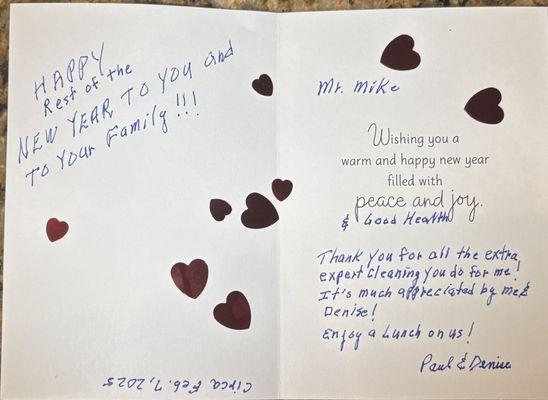 HAPPY
Rest of the
NEW YEAR TO YOU and
TO Your Family!!!
Circa Feb. 7, 2025
Mr. Mike
Wishing you a
warm and happy new year
filled with
peace and joy.
& Good Health
Thank you for all the extra,
expert cleaning you do for me!
It's much appreciated by me &
Denise!
Enjoy a Lunch on us!
Paul & Denise